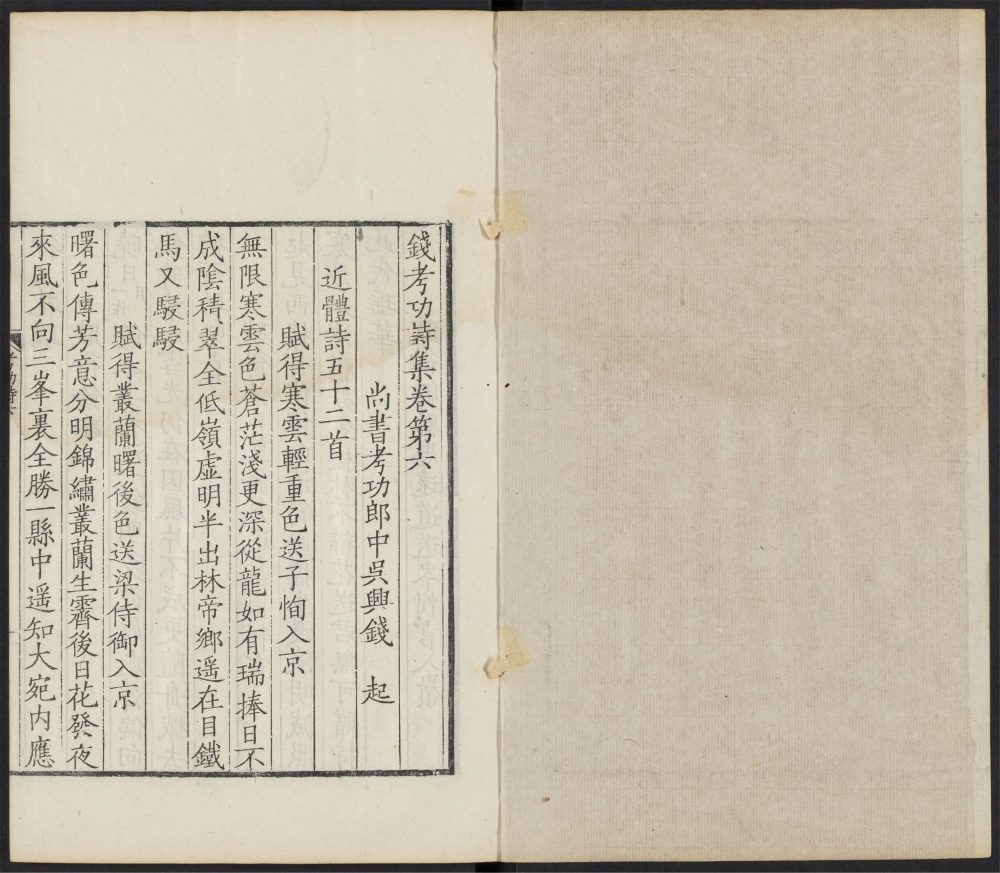 錢考功詩集卷第六
尚書考功郎中吳興錢　起
近體詩五十二首
賦得寒雲輕重色送子恂入京
無限寒雲色蒼茫淺更深從龍如有瑞捧日不
成陰積翠全低嶺虛明半出林帝鄉遥在目鐵
馬又駸駸
賦得叢蘭曙後色送梁侍御入京
曙色傳芳意分明錦繡叢蘭生霽後日花發夜
來風不向三峯裏全勝一縣中遥知大宛内應